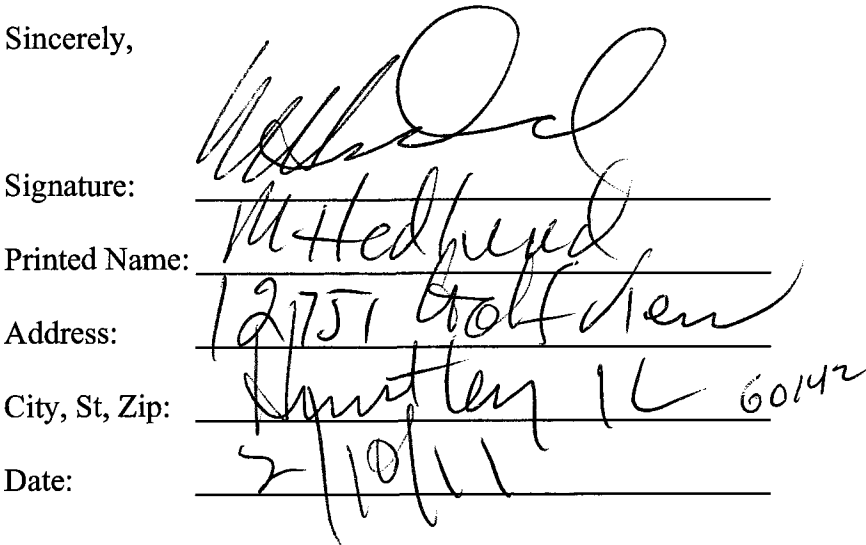 Sincerely,
Signature:
Printed Name: M Hedlund
Address: 12751 Golf View
City, St, Zip: Huntley IL 60142
Date: 2/10/11